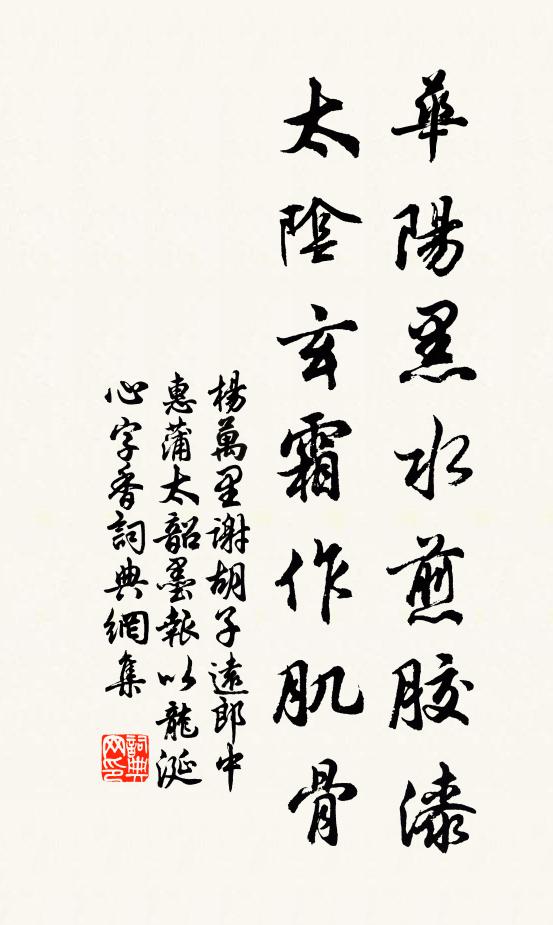 華陽黑水煎膠漆
太陰玄霜作肌骨
楊萬里謝胡子遠郎中
惠蒲太韶墨報以龍涎
心字香詞典網集
詞典网印